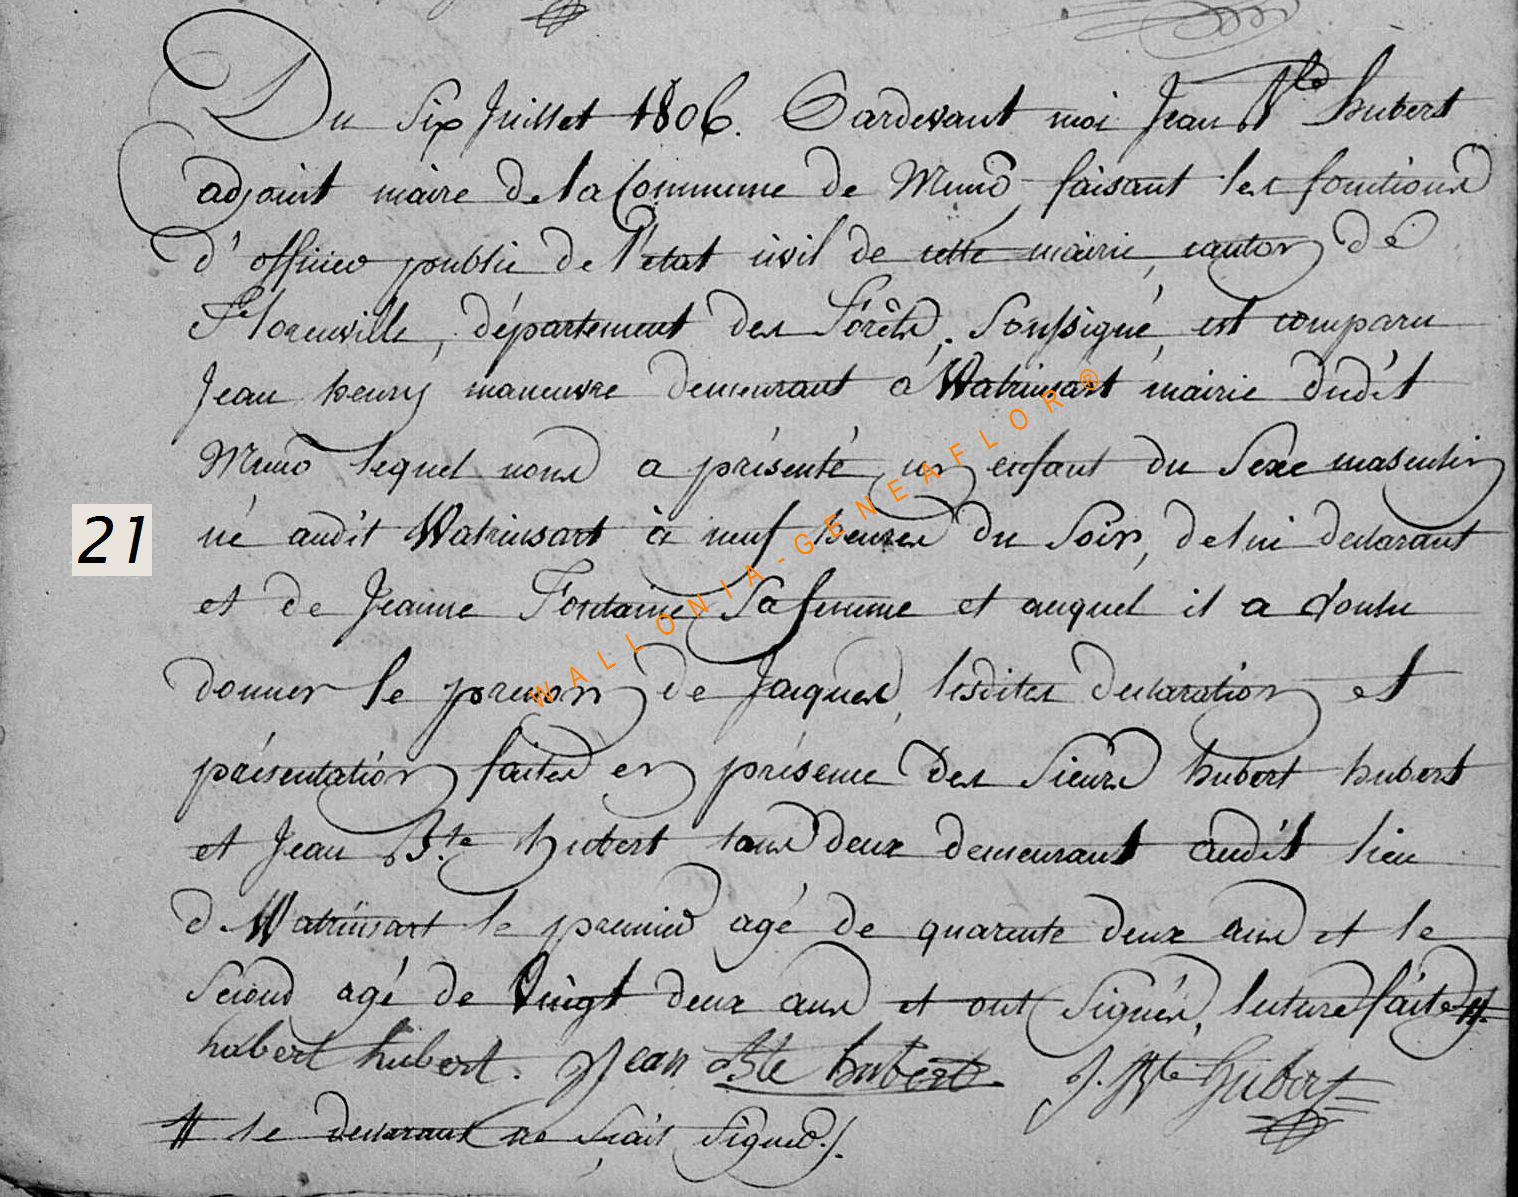 Du Six Juillet 1806. Pardevant moi Jean Bte hubert
adjoint maire de la Commune de Muno faisant les fonctions
d'officier public de l'état civil de cette mairie, canton de
Florenville, département des Forêts, Soussigné, est comparu
Jean henry maneuvre demeurant à Watrinsart mairie dudit
Muno lequel nous a présenté un enfant du Sexe masculin
21
né audit Watrinsart à neuf heures du Soir, de lui déclarant
et de Jeanne Fontaine Sa femme et auquel il a voulu
donner le prenom de Jacques, lesdites declaration et
présentation faites en présence des Sieurs hubert hubert
et Jean Bte hubert tous deux demeurant audit lieu
de Watrinsart le premier agé de quarente deux ans et le
Second agé de Vingt deux ans et ont Signés, lecture faite //.
hubert hubert. Jean Bte hubert J. Bte Hubert
// le declarant ne sçait Signer./.
WALLONIA-GENEAFLOR®